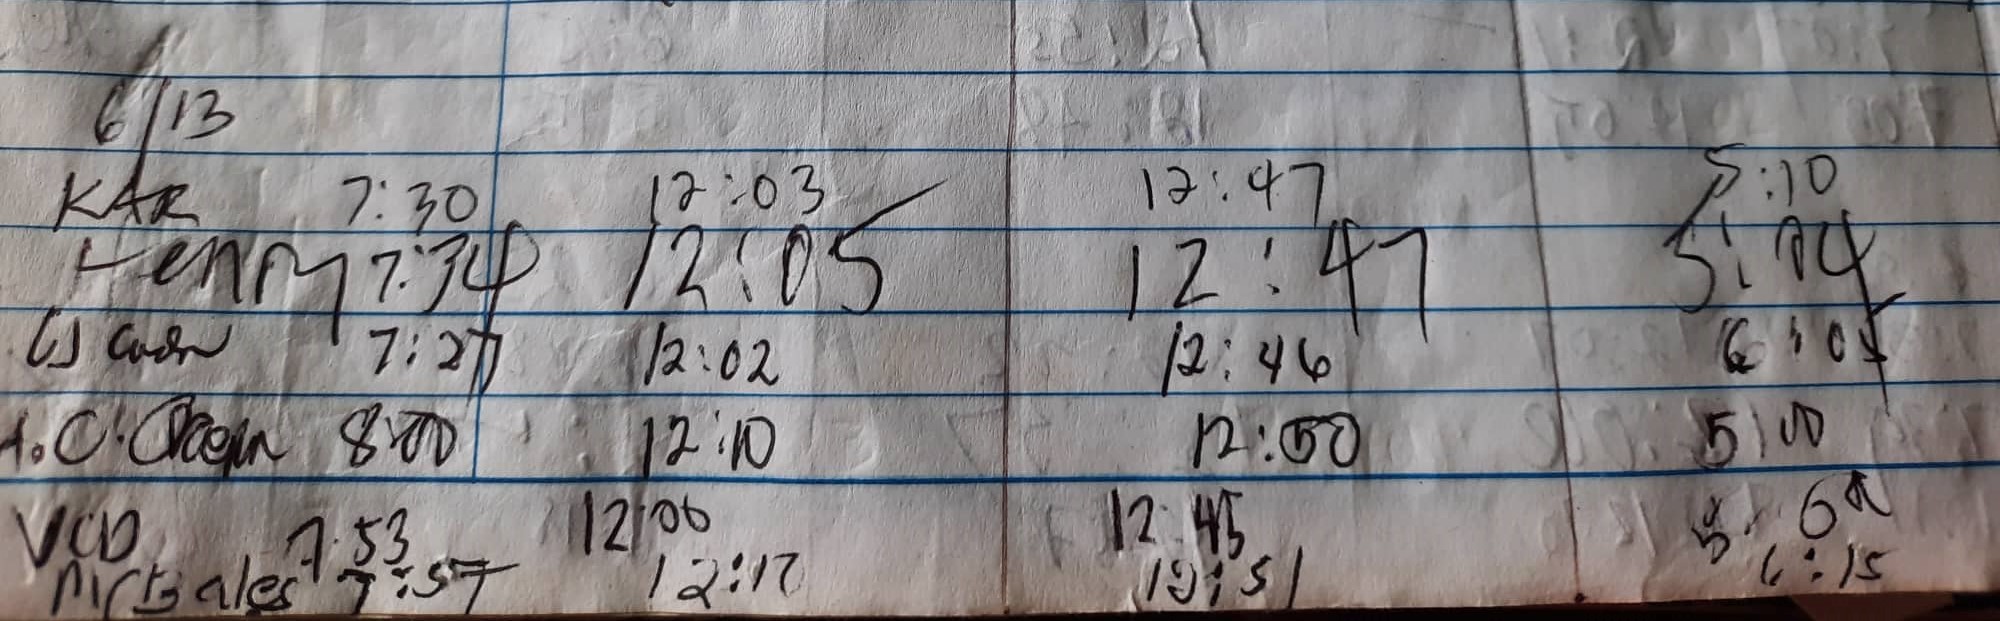 6/13
KAR 7:30 12:03 12:47 5:10
Henry 7:34 12:05 12:47 5:04
7:27 12:02 12:46
8:00 12:10 12:50 5:00
VCD 7:53 12:06 12:45
7:57 12:17 12:51 6:15